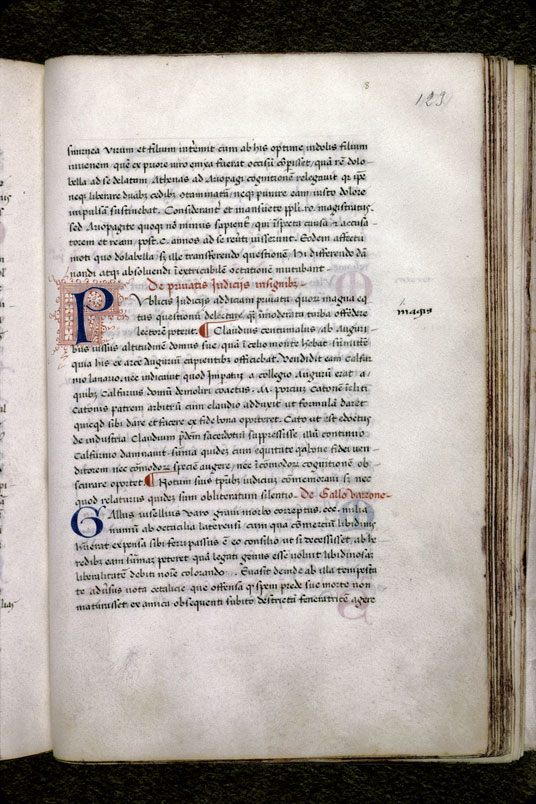 8
123
smirnea virum et filium interemit cum ab his optime indolis filium
iuvenem, quē ex priore viro enixa fuerat occisū cōperisset, quā rē dolo-
bella ad se delatam Athenas ad Ariopagi cognitionē relegavit q̄ ip̄e
neq; liberare duabᵒ cedibᵒ cōtaminatā, neq; punire eam iusto dolore
impulsam sustinebat. Considerant᷑ et mansuete ppl̄i ro. magistratus,
sed Ariopagite quoq; nō minus sapient᷑, qui īspecta causa et accusa
torem et ream, post .c. annos ad se reūti iusserunt. Eodem affectu
moti quo dolabella, sʒ ille transferendo questionē, Hi differendo dā
nandi atq; absolvendi īextricabilē cōtationē mutabant
De privatis Iudicijs insignibʒ-
PUblicis Iudicijs addicam privata, quoꝝ magna eq
tas questionū delectare, q̄ īmoderata turba offēdere
lectorē poterit. ¶ Claudius centumalus, ab Augurí
magis
bus iussus altitudinē domus sue, quā ī celio monte hēbat, sūmittē
quia his ex arce Augurium capientibus officiebat. Vendidit eam Calfur
nio lanario, nec indicavit quod īmpatū a collegio Augurū erat, a
quibʒ Calfurnius domū demoliri coactus, M. porcium Catonē īcliti
Catonis patrem arbitrū cum claudio adduxit ut formulā daret
quicqd sibi dare et facere ex fide bona oporteret. Cato ut est edoctus
de industria Claudium p̄dēm sacerdotū suppressisse, illū continuo
Calfurnio damnavit. sūma quidez cum equitate q̄a bone fidei ven
ditorem, nec cōmodoꝝ specie augere, nec īcōmodoꝝ cognitionē ob-
scurare oportet. ¶ Notum suis tp̄ribʒ iudiciū cōmemoravi sʒ nec
quod relaturus quidez sum obliteratum silentio. De Gallo varrone-
GAllus visellius Varo gravi morbo correptus, ccc. milia
numū ab octacilia laterensi cum qua cōmercīū libidinis
huerat expensa sibi ferri passus ē eo consilio ut si decessisset, ab he
redibʒ eam sūmaʒ peteret quā legati genus esse voluit libidinosaʒ
liberalitatē debiti noīe colorando. Evasit deinde ab illa tempesta
te adversus vota octacilie que offensa q̄ spem prede sue morte non
maturasset, ex amica obsequenti subito destrictā feneratricē agere